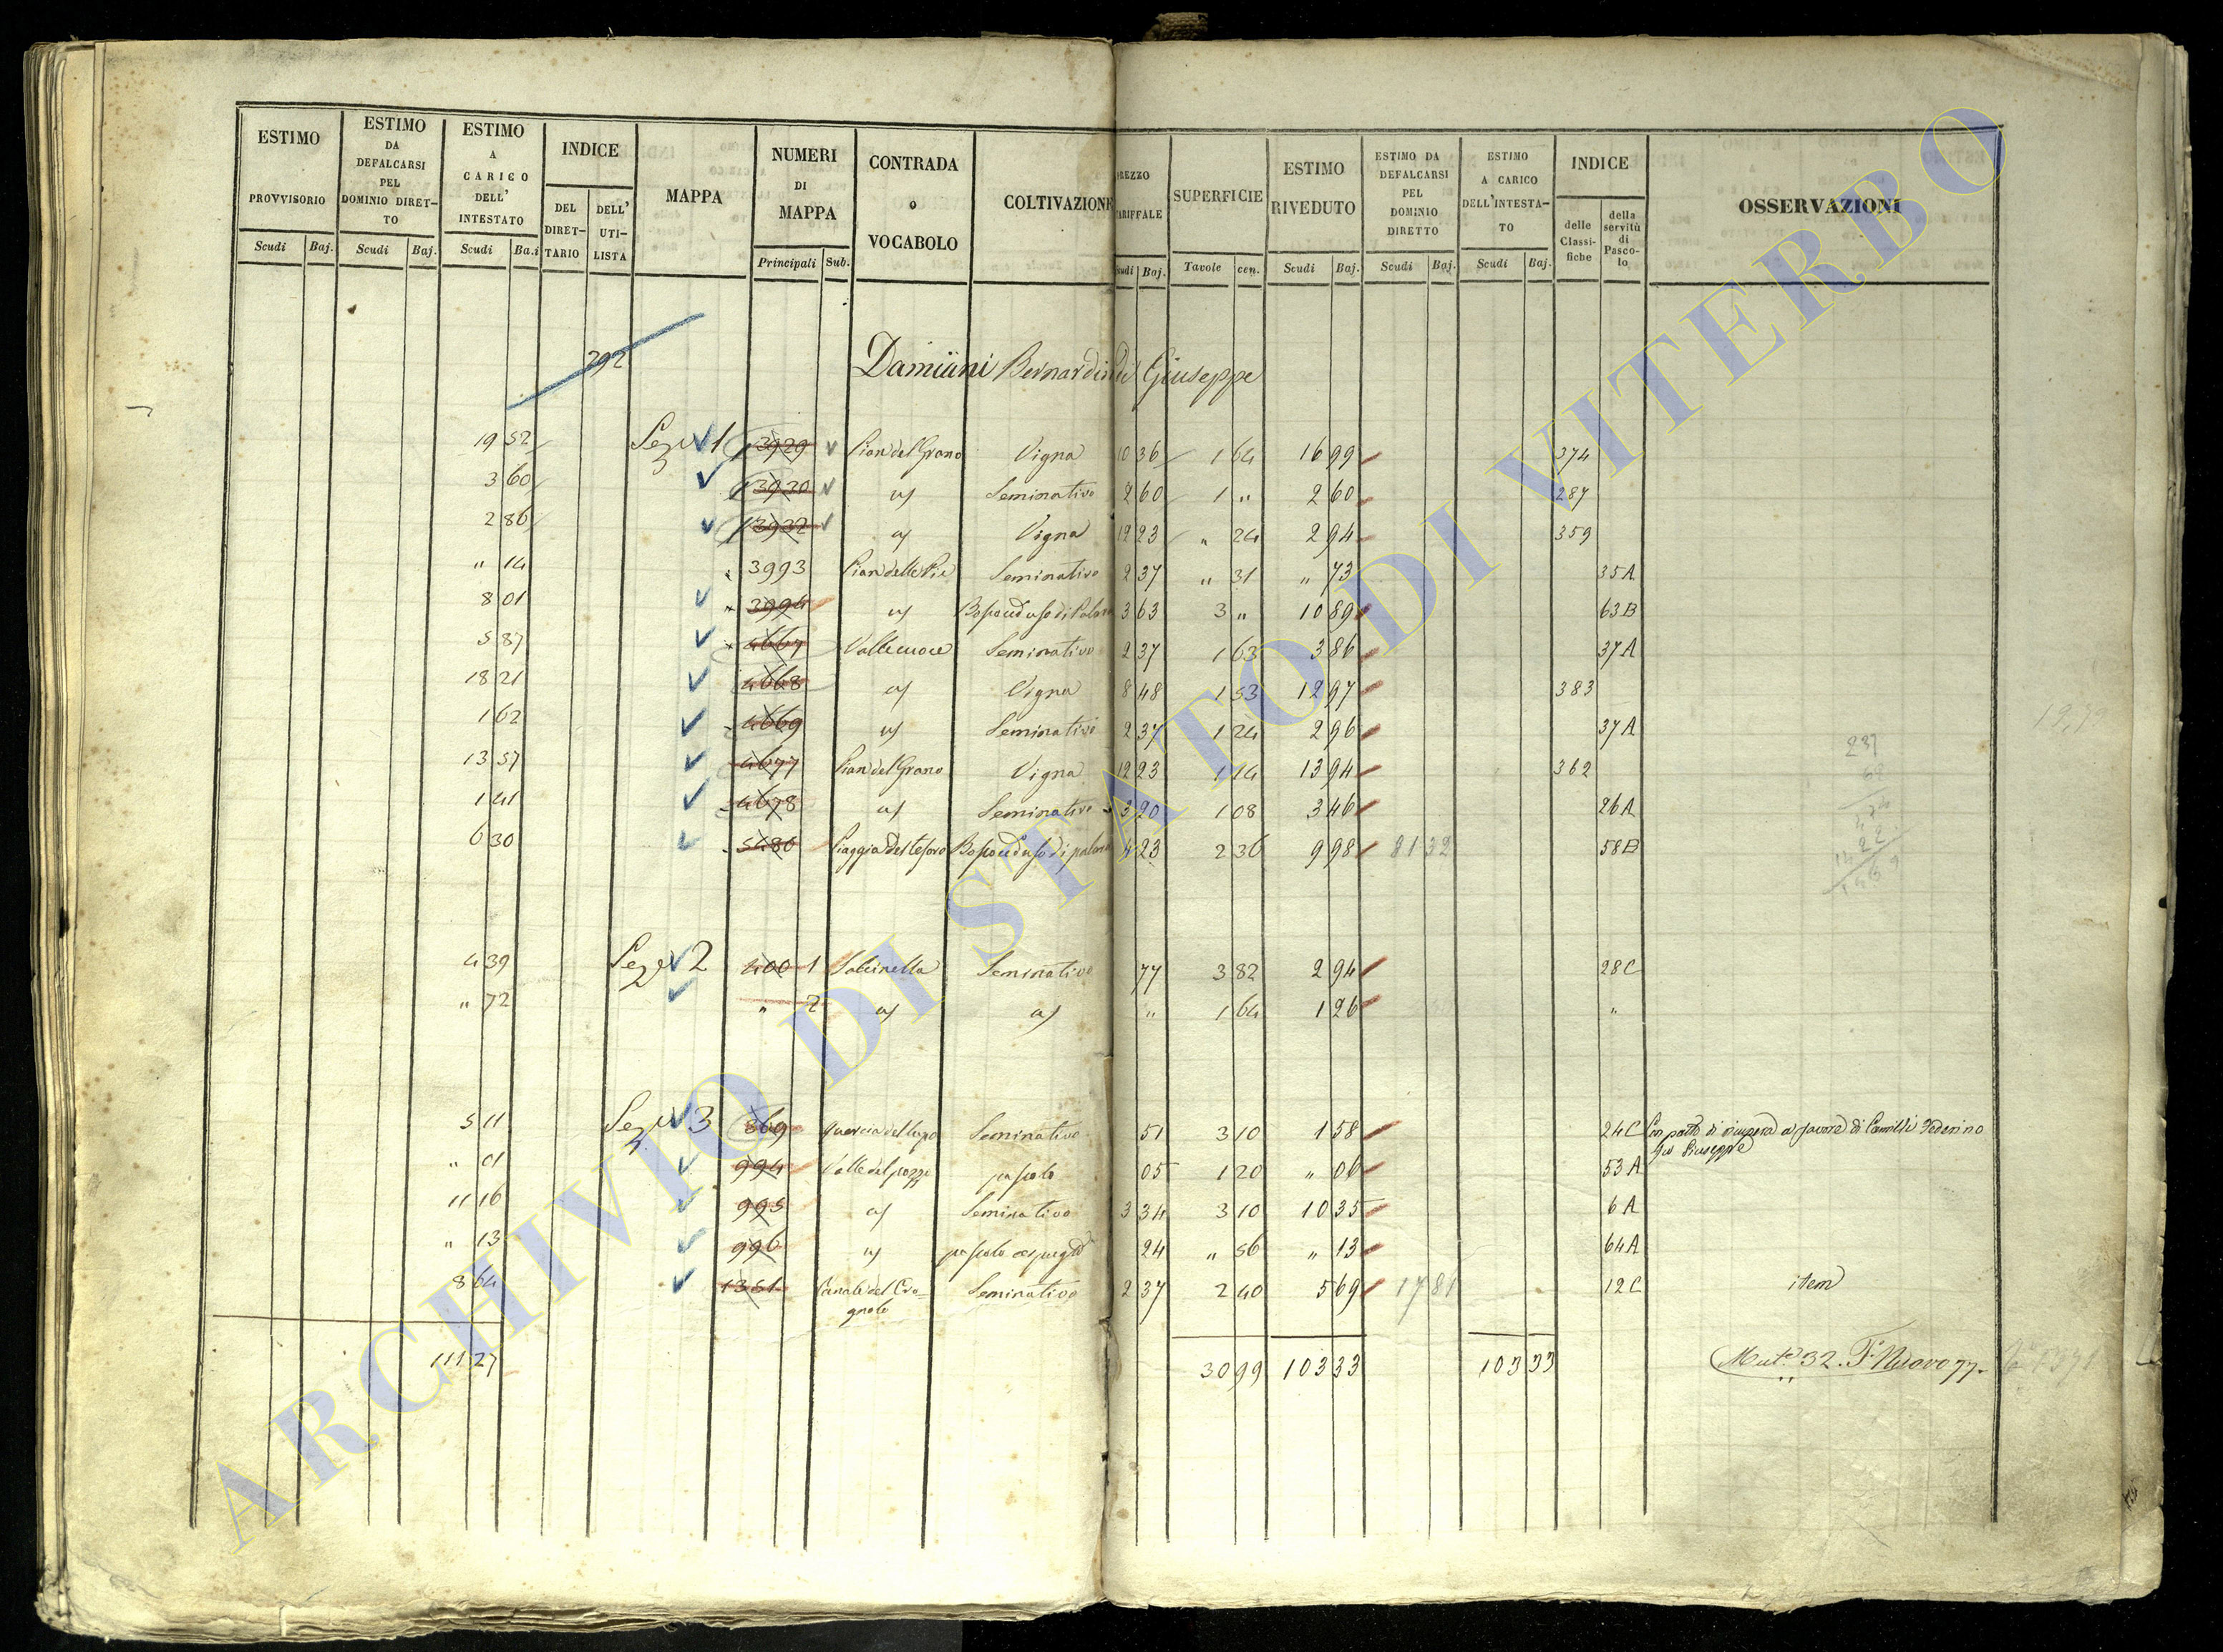 ESTIMO PROVVISORIO Scudi Baj.
ESTIMO DA DEFALCARSI PEL DOMINIO DIRET-TO Scudi Baj.
ESTIMO A CARICO DELL' INTESTATO Scudi Ba.i
INDICE DEL DIRET-TARIO DELL' UTI-LISTA
MAPPA
NUMERI DI MAPPA Principali Sub.
CONTRADA o VOCABOLO
COLTIVAZIONE
REZZO ARIFFALE udi Baj.
SUPERFICIE Tavole cen.
ESTIMO RIVEDUTO Scudi Baj.
ESTIMO DA DEFALCARSI PEL DOMINIO DIRETTO Scudi Baj.
ESTIMO A CARICO DELL'INTESTA-TO Scudi Baj.
INDICE delle Classi-fiche della servitù di Pasco-lo
OSSERVAZIONI
292 Damiani Bernardin di Giuseppe
19 52 Sez 1 3929 Pian del Grano Vigna 10 36 1 64 16 99 374
3 60 3930 Seminativo 2 60 1 " 2 60 287
2 86 3932 Vigna 12 23 " 24 2 94 359
" 14 3993 Pian delle Pie Seminativo 2 37 " 31 " 73 35A
8 01 3994 3 63 3 " 10 89 63B
5 87 4667 Valle cuore Seminativo 2 37 1 63 3 86 37A
18 21 4668 Vigna 8 48 1 53 12 97 383
1 62 4669 Seminativo 2 37 1 24 2 96 37A
13 57 4677 Pian del Grano Vigna 12 23 1 14 13 94 362
1 41 4678 Seminativo 3 20 1 08 3 46 26A
6 30 5486 Piaggia del tesoro 4 23 2 36 9 98 81 32 58B
4 39 Sez 2 400 1 Salcinella Seminativo 77 3 82 2 94 28C
" 72 " 2 " 1 64 1 26 "
5 11 Sez 3 869 Quercia del lupo Seminativo 51 3 10 1 58 24C Con patto di a favore di Camilli Federino
Giuseppe
" 01 994 Valle del pozzo pascolo 05 1 20 " 06 53A
11 16 995 Seminativo 3 34 3 10 10 35 6A
" 13 996 pascolo 24 " 56 " 13 64A
8 64 1351 Canale del Cro-gnolo Seminativo 2 37 2 40 5 69 17 81 12C item
111 27 30 99 103 33 103 33 Mut.e 32. F. Nuovo 77.
ARCHIVIO DI STATO DI VITERBO